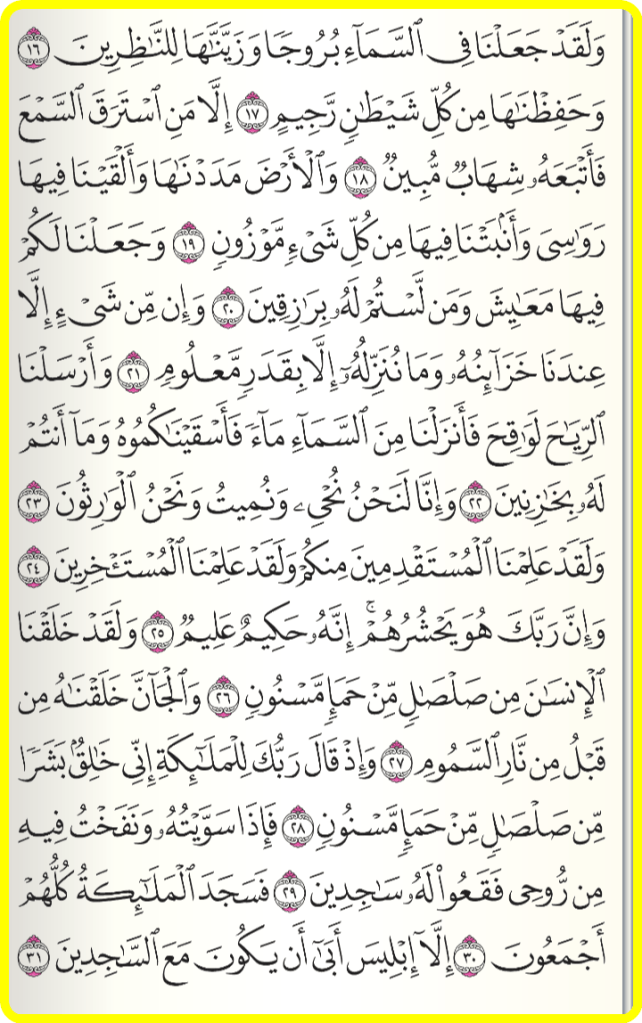 وَلَقَدْ جَعَلْنَا فِي السَّمَآءِ بُرُوجًا وَزَيَّنَّٰهَا لِلنَّٰظِرِينَ ١٦
وَحَفِظْنَٰهَا مِن كُلِّ شَيْطَٰنٍ رَّجِيمٍ ١٧ إِلَّا مَنِ ٱسْتَرَقَ ٱلسَّمْعَ
فَأَتْبَعَهُۥ شِهَابٌ مُّبِينٌ ١٨ وَٱلْأَرْضَ مَدَدْنَٰهَا وَأَلْقَيْنَا فِيهَا
رَوَٰسِىَ وَأَنۢبَتْنَا فِيهَا مِن كُلِّ شَىْءٍ مَّوْزُونٍ ١٩ وَجَعَلْنَا لَكُمْ
فِيهَا مَعَٰيِشَ وَمَن لَّسْتُمْ لَهُۥ بِرَٰزِقِينَ ٢٠ وَإِن مِّن شَىْءٍ إِلَّا
عِندَنَا خَزَآئِنُهُۥ وَمَا نُنَزِّلُهُۥٓ إِلَّا بِقَدَرٍ مَّعْلُومٍ ٢١ وَأَرْسَلْنَا
ٱلرِّيَٰحَ لَوَٰقِحَ فَأَنزَلْنَا مِنَ ٱلسَّمَآءِ مَآءً فَأَسْقَيْنَٰكُمُوهُ وَمَآ أَنتُمْ
لَهُۥ بِخَٰزِنِينَ ٢٢ وَإِنَّا لَنَحْنُ نُحْىِۦ وَنُمِيتُ وَنَحْنُ ٱلْوَٰرِثُونَ ٢٣
وَلَقَدْ عَلِمْنَا ٱلْمُسْتَقْدِمِينَ مِنكُمْ وَلَقَدْ عَلِمْنَا ٱلْمُسْتَـْٔخِرِينَ ٢٤
وَإِنَّ رَبَّكَ هُوَ يَحْشُرُهُمْ ۚ إِنَّهُۥ حَكِيمٌ عَلِيمٌ ٢٥ وَلَقَدْ خَلَقْنَا
ٱلْإِنسَٰنَ مِن صَلْصَٰلٍ مِّنْ حَمَإٍ مَّسْنُونٍ ٢٦ وَٱلْجَآنَّ خَلَقْنَٰهُ مِن
قَبْلُ مِن نَّارِ ٱلسَّمُومِ ٢٧ وَإِذْ قَالَ رَبُّكَ لِلْمَلَٰٓئِكَةِ إِنِّى خَٰلِقٌۢ بَشَرًا
مِّن صَلْصَٰلٍ مِّنْ حَمَإٍ مَّسْنُونٍ ٢٨ فَإِذَا سَوَّيْتُهُۥ وَنَفَخْتُ فِيهِ
مِن رُّوحِى فَقَعُوا۟ لَهُۥ سَٰجِدِينَ ٢٩ فَسَجَدَ ٱلْمَلَٰٓئِكَةُ كُلُّهُمْ
أَجْمَعُونَ ٣٠ إِلَّآ إِبْلِيسَ أَبَىٰٓ أَن يَكُونَ مَعَ ٱلسَّٰجِدِينَ ٣١